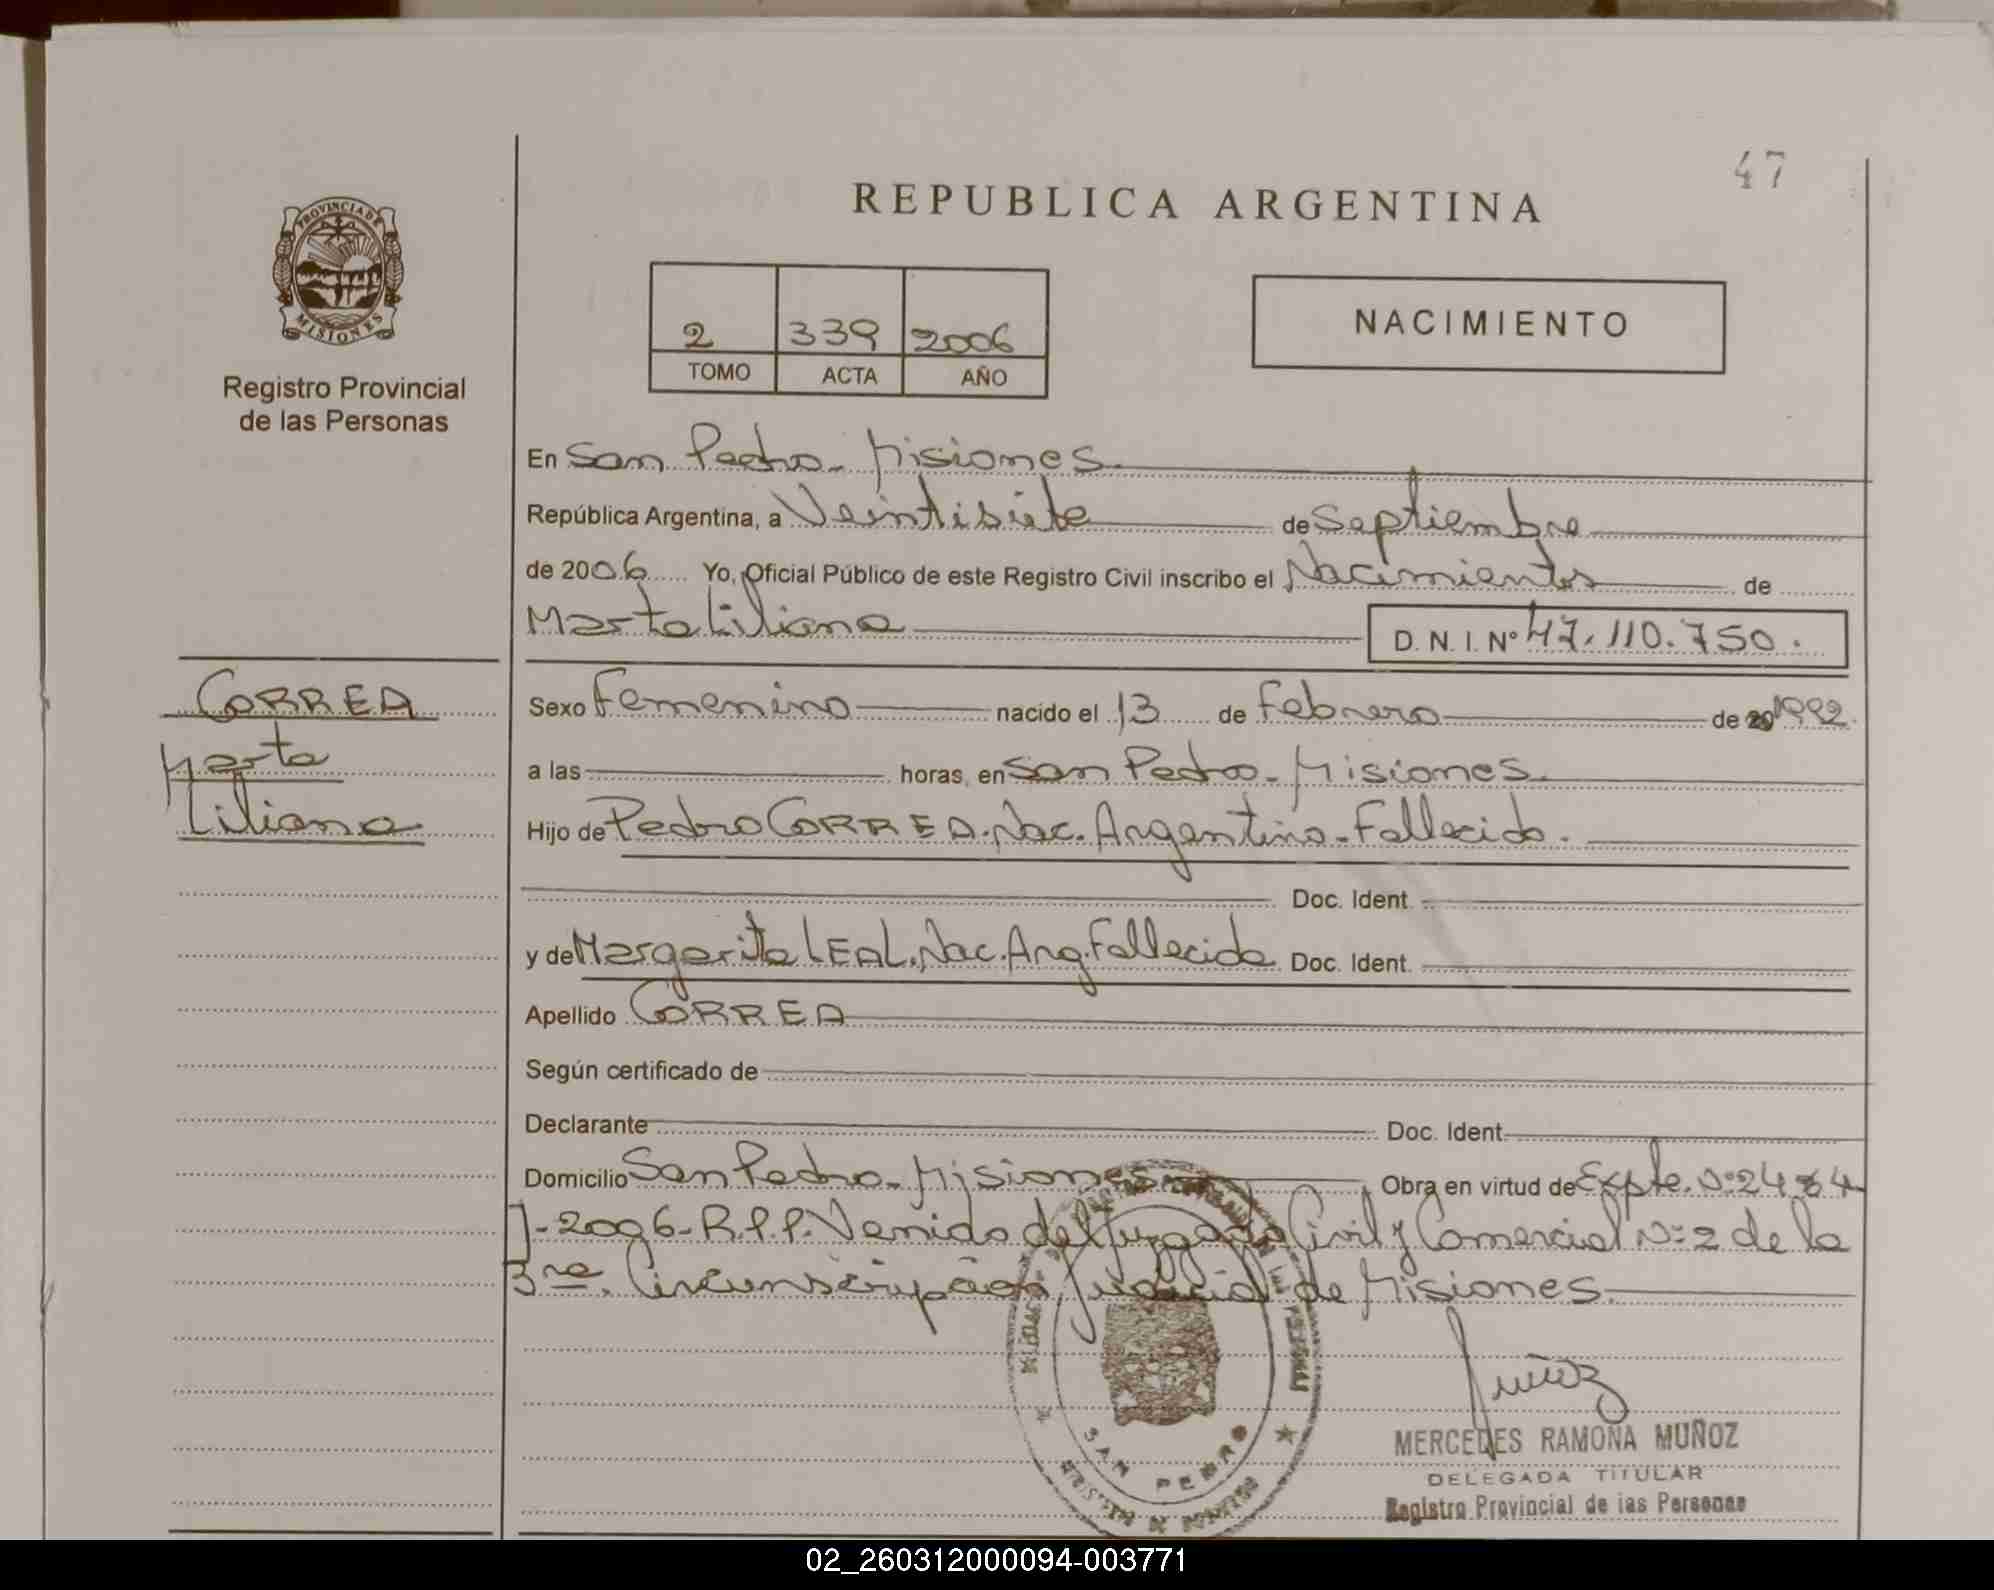 47
REPUBLICA ARGENTINA
PROVINCIA DE
MISIONES
Registro Provincial
de las Personas
2 339 2006
TOMO ACTA AÑO
NACIMIENTO
En San Pedro - Misiones.
República Argentina, a Veintisiete de Septiembre
de 2006 Yo, Oficial Público de este Registro Civil inscribo el Nacimiento de
Marta Liliana D. N. I. Nº 47.110.750.
CORREA
Marta
Liliana
Sexo Femenino nacido el 13 de Febrero de 20 1992.
a las horas, en San Pedro - Misiones.
Hijo de Pedro CORREA. Nac. Argentino - Fallecido.
Doc. Ident.
y de Margarita LEAL. Nac. Arg. Fallecida Doc. Ident.
Apellido CORREA
Según certificado de
Declarante Doc. Ident.
Domicilio San Pedro - Misiones Obra en virtud de Expte. Nº
J-2006-R.P.P. Venido del Juzgado Civil y Comercial Nº 2 de la
3ra. Circunscripción Judicial de Misiones.
SAN PEDRO
Muñoz
MERCEDES RAMONA MUÑOZ
DELEGADA TITULAR
Registro Provincial de las Personas
02_260312000094-003771